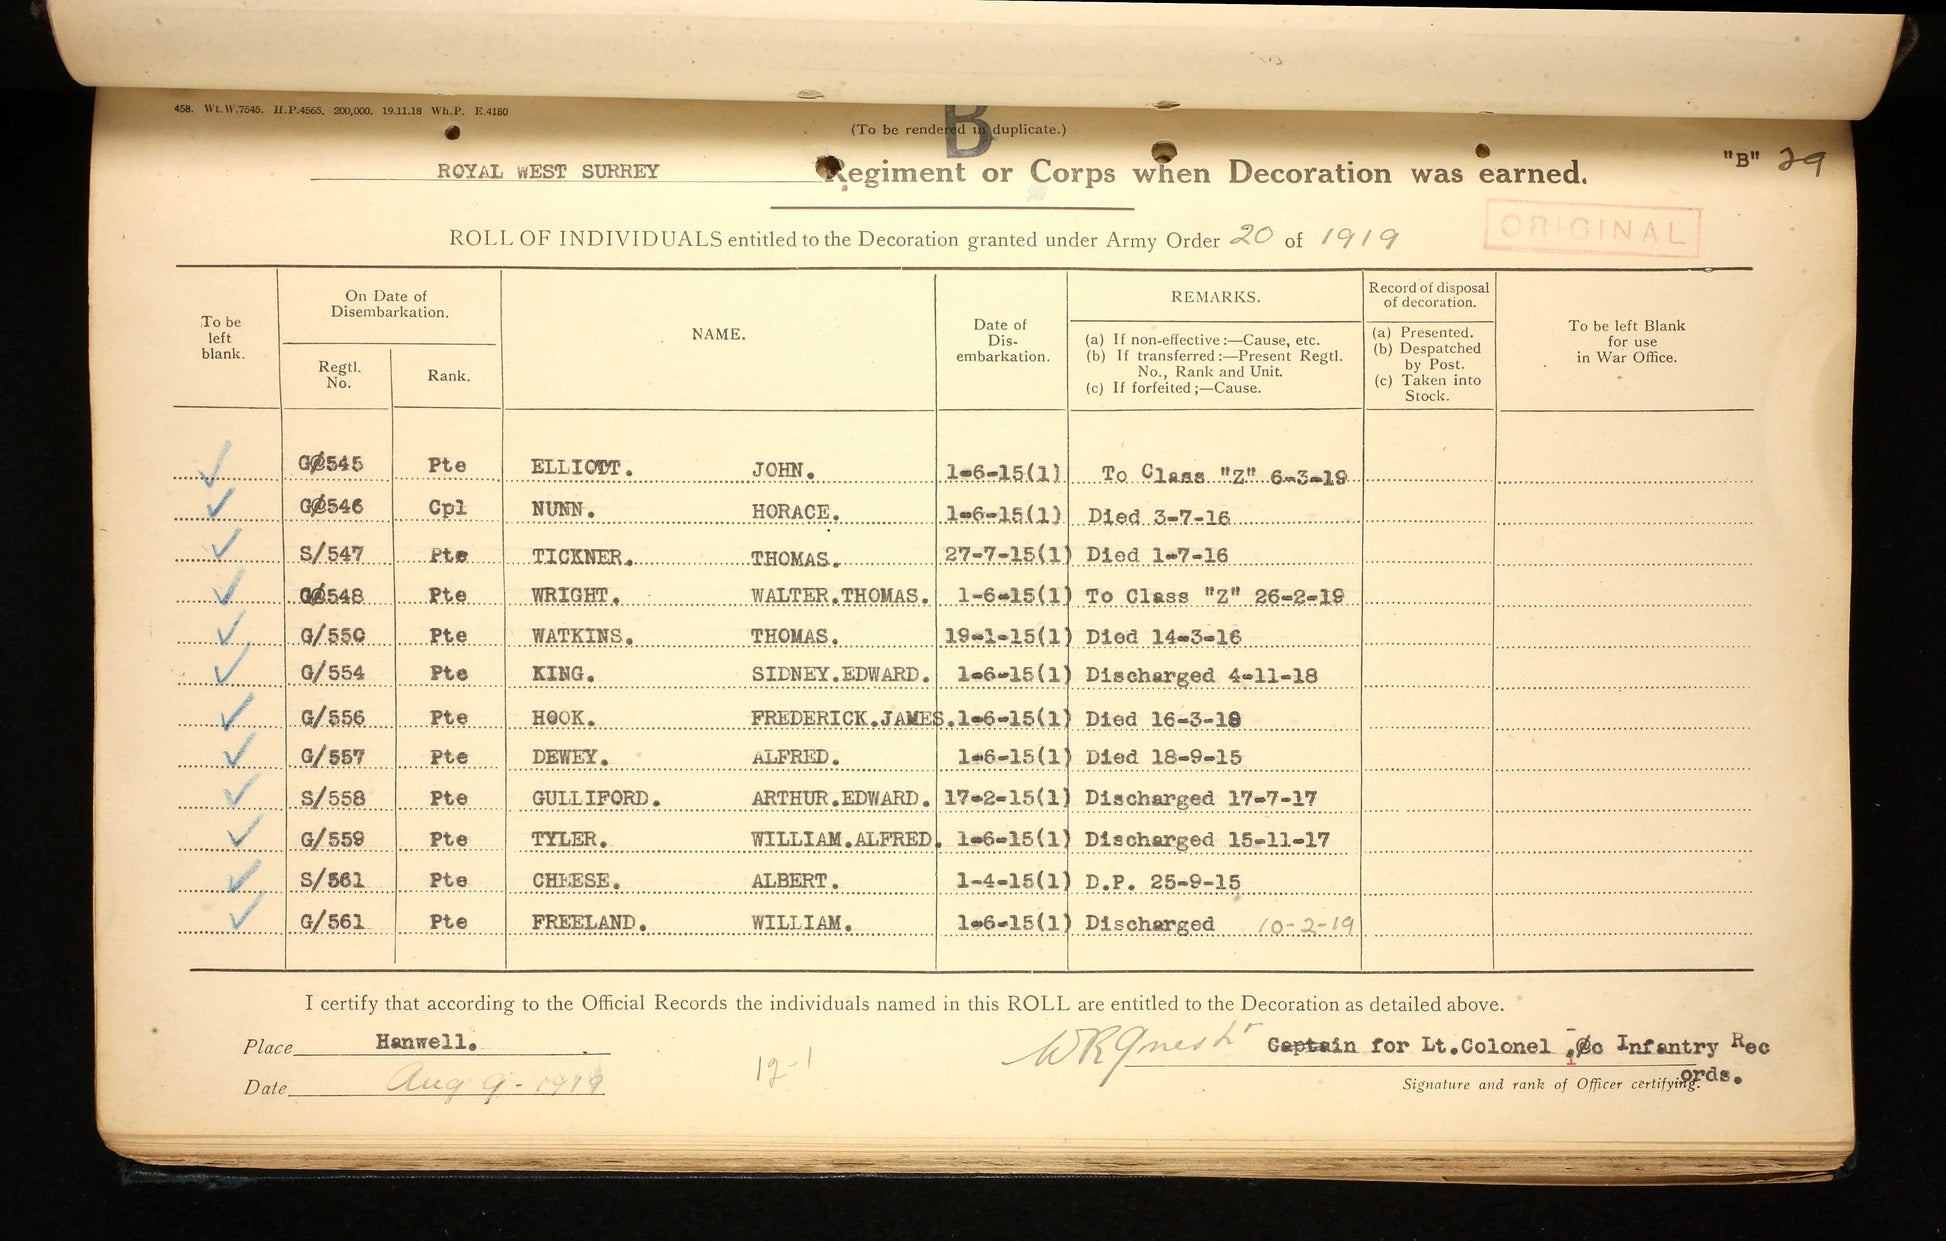 458. Wt.W.7545. H.P.4565. 200,000. 19.11.18 Wh.P. E.4180
B
(To be rendered in duplicate.)
ROYAL WEST SURREY Regiment or Corps when Decoration was earned. "B" 29
ROLL OF INDIVIDUALS entitled to the Decoration granted under Army Order 20 of 1919
ORIGINAL
To be left blank.
On Date of Disembarkation.
Regtl. No.
Rank.
NAME.
Date of Dis-embarkation.
REMARKS.
(a) If non-effective :—Cause, etc.
(b) If transferred :—Present Regtl. No., Rank and Unit.
(c) If forfeited ;—Cause.
Record of disposal of decoration.
(a) Presented.
(b) Despatched by Post.
(c) Taken into Stock.
To be left Blank for use in War Office.
G/545 Pte ELLIOTT. JOHN. 1-6-15(1) To Class "Z" 6-3-19
G/546 Cpl NUNN. HORACE. 1-6-15(1) Died 3-7-16
S/547 Pte TICKNER. THOMAS. 27-7-15(1) Died 1-7-16
G/548 Pte WRIGHT. WALTER.THOMAS. 1-6-15(1) To Class "Z" 26-2-19
G/550 Pte WATKINS. THOMAS. 19-1-15(1) Died 14-3-16
G/554 Pte KING. SIDNEY.EDWARD. 1-6-15(1) Discharged 4-11-18
G/556 Pte HOOK. FREDERICK.JAMES. 1-6-15(1) Died 16-3-18
G/557 Pte DEWEY. ALFRED. 1-6-15(1) Died 18-9-15
S/558 Pte GULLIFORD. ARTHUR.EDWARD. 17-2-15(1) Discharged 17-7-17
G/559 Pte TYLER. WILLIAM.ALFRED. 1-6-15(1) Discharged 15-11-17
S/561 Pte CHEESE. ALBERT. 1-4-15(1) D.P. 25-9-15
G/561 Pte FREELAND. WILLIAM. 1-6-15(1) Discharged 10-2-19
I certify that according to the Official Records the individuals named in this ROLL are entitled to the Decoration as detailed above.
Place Hanwell.
Captain for Lt.Colonel i/c Infantry Records.
Date Aug 9-1919
Signature and rank of Officer certifying.